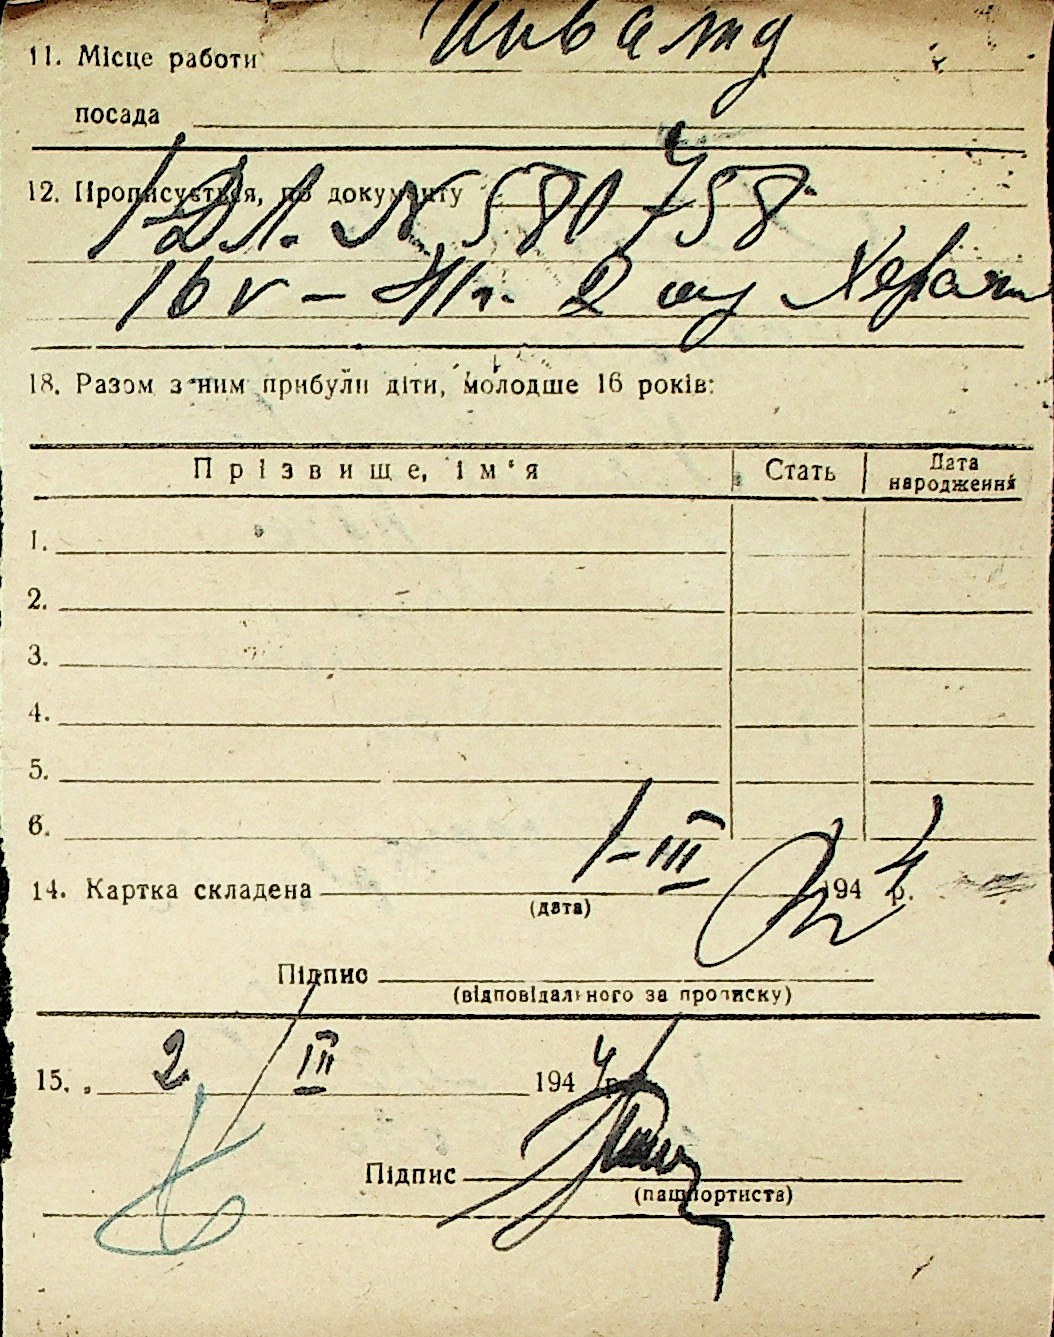 11. Місце работи
посада
12. Прописується, по документу
I-ДЛ. N 581758
16 V – 41 г. 2
18. Разом з ним прибули діти, молодше 16 років:
Прізвище, ім'я Стать Дата народження
1.
2.
3.
4.
5.
6.
14. Картка складена 1-III 1944 р.
(дата)
Підпис
(відповідального за прописку)
15. 2 III 1944 р.
Підпис
(пашпортиста)